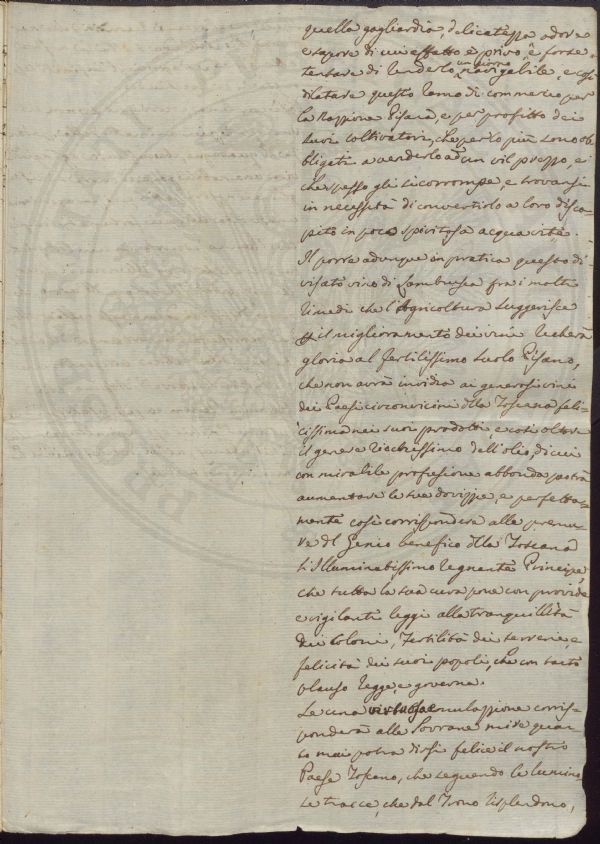 quella gagliardia, delicatezza odore
e sapore di cui effetto è privo, è forse
tentare di renderlo un giorno navigabile, e così
dilatare questo ramo di commercio per
la Nazzione Pisana, e per profitto dei
suoi coltivatori, che per lo più sono ob
bligati a venderlo ad un vil prezzo, ei
che spesso gli si corrompe, e trovansi
in necessità di convertirlo a loro disca-
pito in poca spiritosa acquavite.
Il porre adunque in pratica questo di-
visato vino di Lambrusca fra i molti
rimedi che l'Agricoltura suggerisce
il miglioramento dei vini recherà
gloria al fertilissimo suolo Pisano,
che non avrà invidia ai generosi vini
dei Paesi circonvicini della Toscana feli-
cissima nei suoi prodotti, e così oltre
il genere ricchissimo dell'olio, di cui
con mirabile profusione abbonda potrà
aumentare le sue dovizze, e perfetta-
mente così corrisponderà alle premu-
re del Genio benefico della Toscana
Illuminatissimo regnante Principe,
che tutta la sua cura pone con provide
e vigilanti leggi alla tranquillità
dei Coloni, fertilità dei terreni, e
felicità dei suoi popoli, che con tanto
plauso regge, e governa.
Se una virtuosa emulazzione corris-
ponderà alle Sovrane mire quan-
to mai potrà dirsi felice il nostro
Paese Toscano, che seguendo le lumino
se tracce, che dal Trono risplendono,